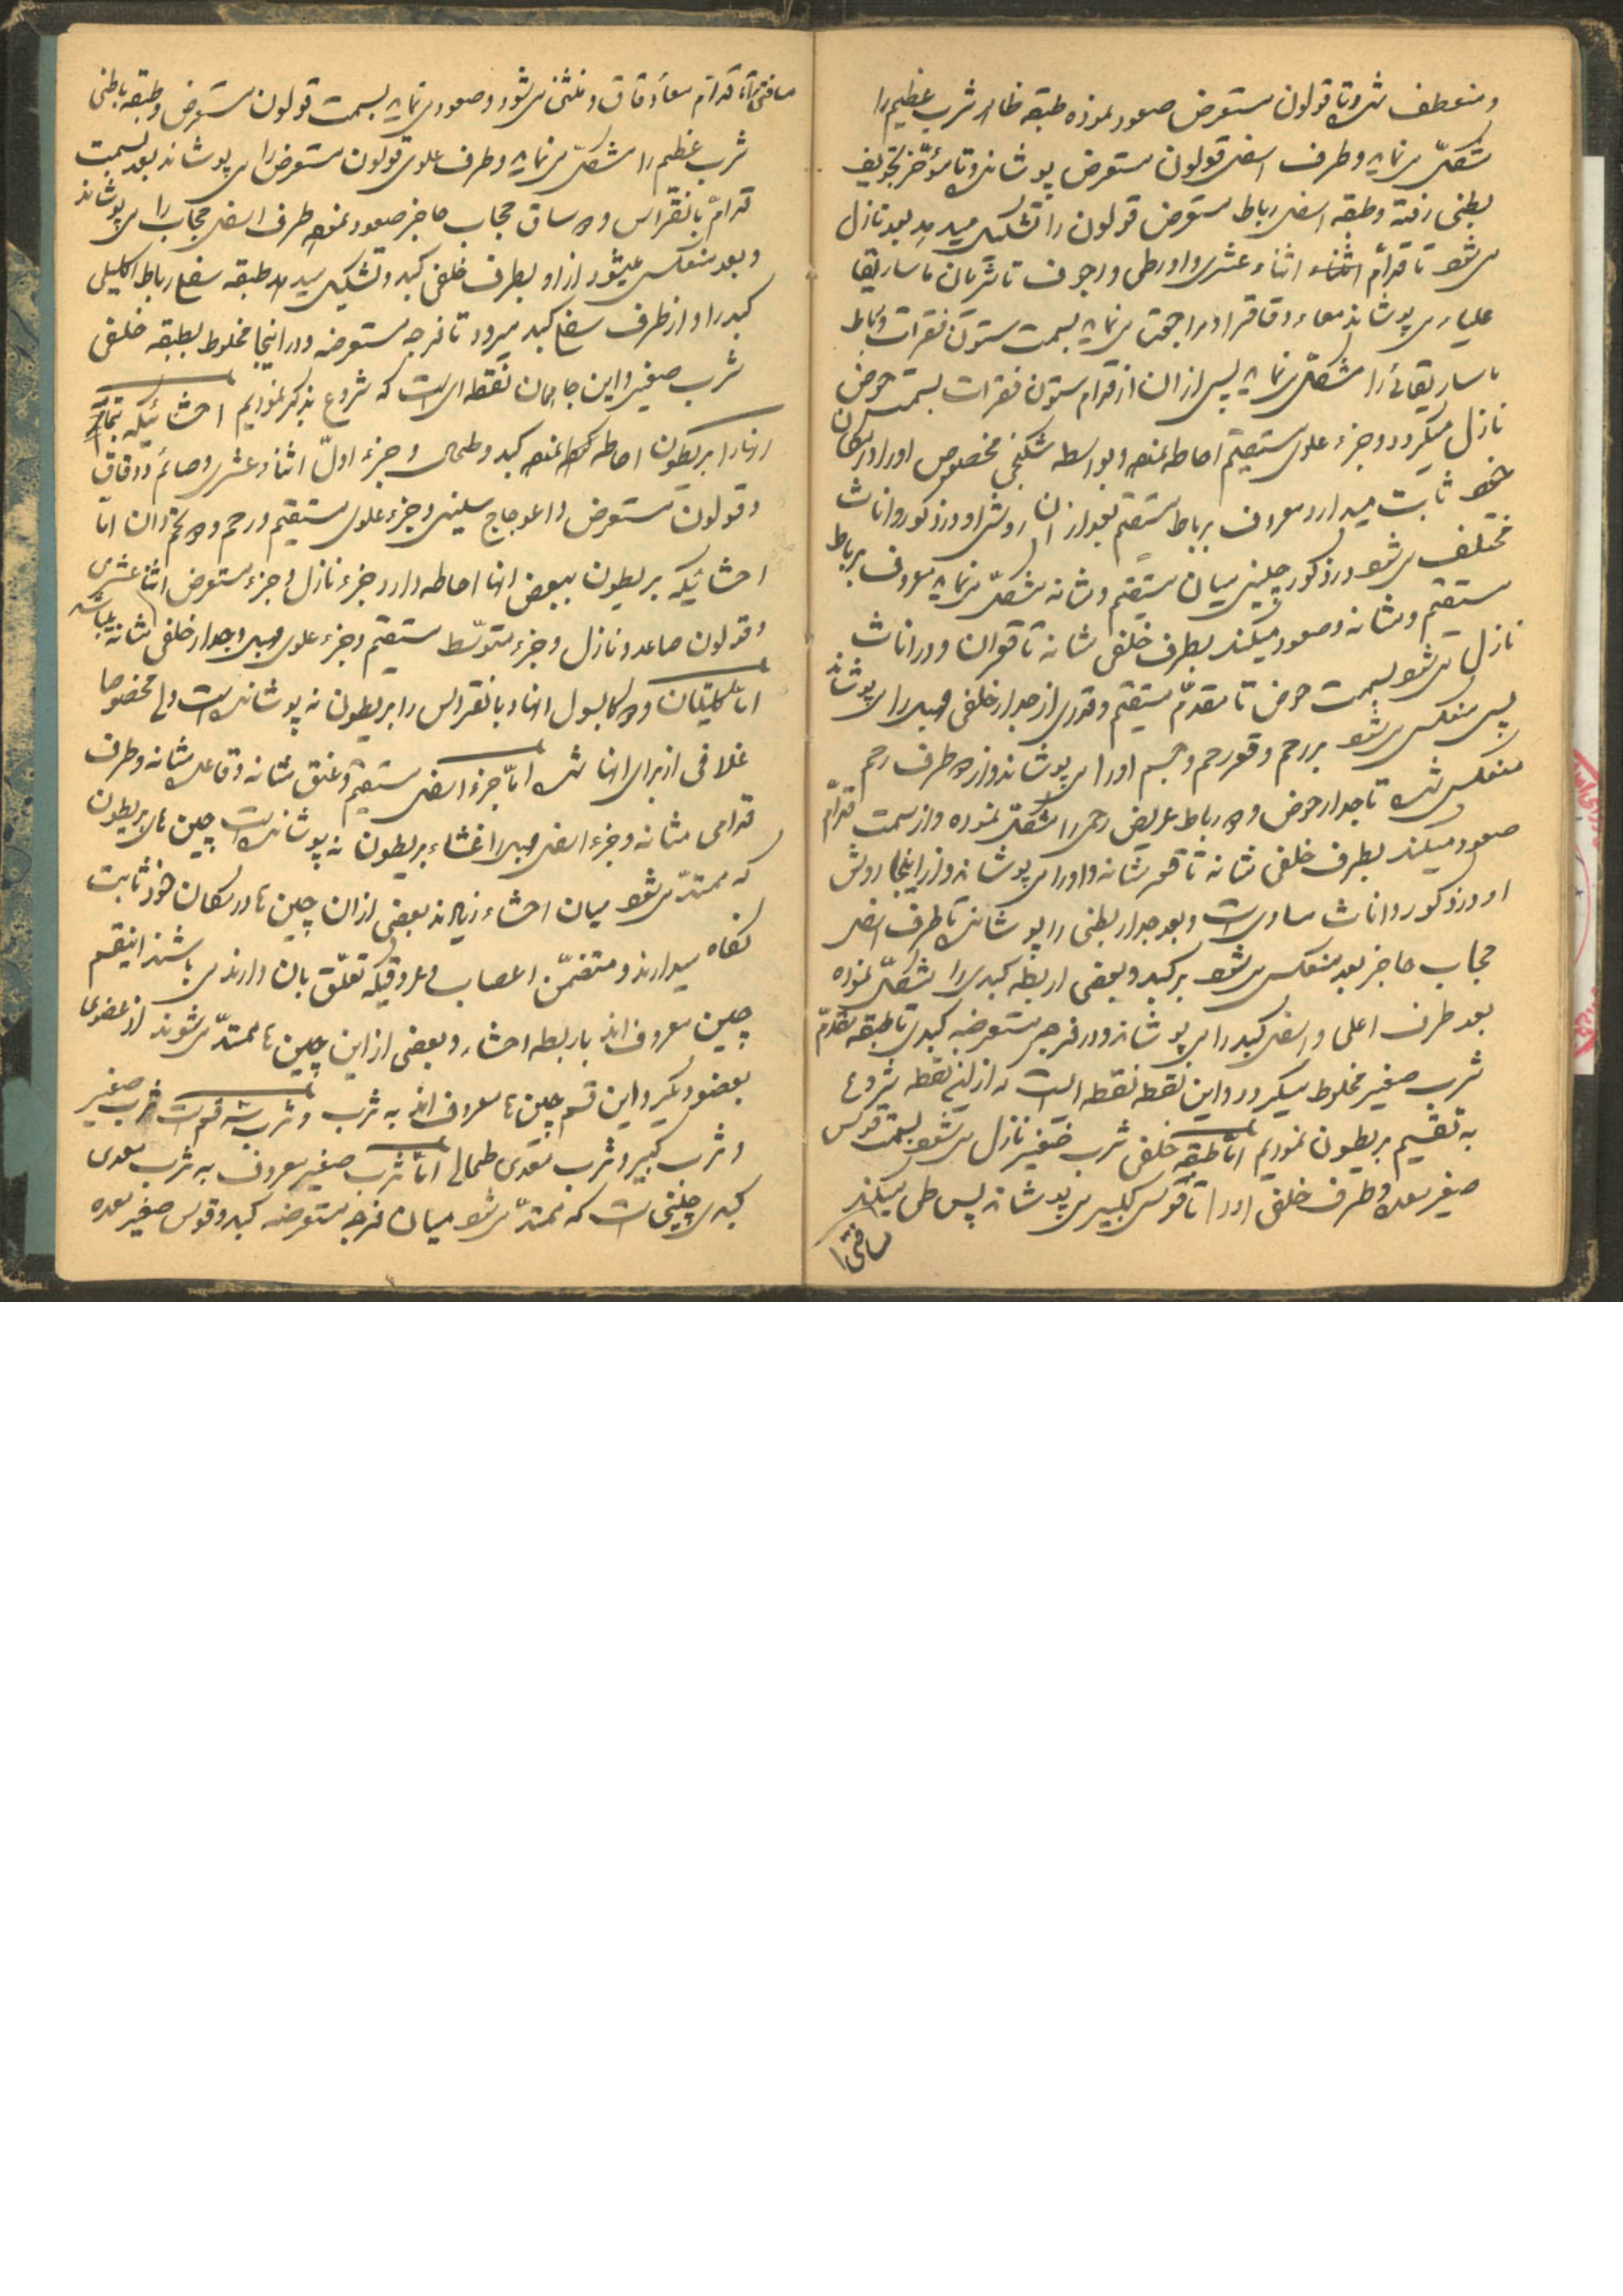 و منعطف شده تا قولون مستعرض صعود نموده طبقه ظاهر ثرب عظیم را
متشکل می نماید و طرف اسفل قولون مستعرض پوشانده و تا مؤخر تجویف
بطنی رفته و طبقه اسفل رباط مستعرض قولون را تشکیل میدهد بعد نازل
می شود تا قدام اثناء عشری و اورطی و اجوف تا شریان ماساریقا
علیا می پوشاند معاء دقاق را و مراجعت می نماید بسمت ستون فقرات و رباط
ماساریقائی را متشکل می نماید پس از ان از قدام ستون فقرات بسمت حوض
نازل میگردد و جزء علوی مستقیم احاطه نموده و بواسطه شکنجی مخصوص او را در مکان
خود ثابت میدارد معروف برباط مستقیم بعد از ان روش او در ذکور و اناث
مختلف می شود در ذکور چینی میان مستقیم و مثانه متشکل می نماید معروف برباط
مستقیم و مثانه و صعود میکند بطرف خلفی مثانه تا قعر ان و در اناث
نازل می شود بسمت حوض تا مقدم مستقیم و قدری از جدار خلفی مهبل را می پوشاند
پس منعکس می شود بر رحم و قعر رحم و جسم او را می پوشاند و از دو طرف رحم
منعکس شده تا جدار حوض و دو رباط عریض رحمی را متشکل نموده و از سمت قدام
صعود میکند بطرف خلفی مثانه تا قعر مثانه و او را می پوشاند و از اینجا روش
او در ذکور و اناث مساوی است و بعد جدار بطنی را پوشانده تا طرف اسفل
حجاب حاجز بعد منعکس می شود بر کبد و بعضی اربطه کبدی را متشکل نموده
بعد طرف اعلی و اسفل کبد را می پوشاند و در فرجه مستعرضه کبدی تا طبقه مقدم
ثرب صغیر مخلوط میگردد و این نقطه نقطه است که از این نقطه شروع
به تقسیم بریطون نمودیم اما طبقه خلفی ثرب صغیر نازل می شود بسمت قوس
صغیر معده و طرف خلفی او را تا قوس کبیر می پوشاند پس طی میکند
مسافتی را
مسافتی را تا قدام معاء دقاق و منثنی می شود و صعود می نماید بسمت قولون مستعرض و طبقه باطنی
ثرب عظیم را متشکل می نماید و طرف علوی قولون مستعرض را می پوشاند بعد بسمت
قدام بانقراس و دو ساق حجاب حاجز صعود نموده طرف اسفل حجاب را می پوشاند
و بعد منعکس میشود از او بطرف خلفی کبد و تشکیل میدهد طبقه سفلی رباط اکلیلی
کبد را و از طرف سفلی کبد میرود تا فرجه مستعرضه و در اینجا مخلوط بطبقه خلفی
ثرب صغیر و این جا همان نقطه ای است که شروع بذکر نمودیم احشائیکه تماماً
انها را بریطون احاطه نموده کبد و طحال و جزء اول اثناء عشری و صائم و دقاق
و قولون مستعرض و اعوجاج سینی و جزء علوی مستقیم و رحم و دو تخمدان اما
احشائیکه بریطون ببعض انها احاطه دارد جزء نازل و جزء مستعرض اثناعشری
و قولون صاعد و نازل و جزء متوسط مستقیم و جزء علوی مهبل و جدار خلفی مثانه میباشد
اما کلیتان و دو کاپسول انها و بانقراس را بریطون نه پوشانده است ولی مخصوصا
غلافی از برای انها شده اما جزء اسفل مستقیم و عنق مثانه و قاعده مثانه و طرف
قدامی مثانه و جزء اسفل مهبل را غشاء بریطون نه پوشانده است چین های بریطون
که ممتد می شود میان احشاء زیادند بعضی از ان چین ها در مکان خود ثابت
نگاه میدارند و متضمن اعصاب و عروقیکه تعلق بان دارند می باشند اینقسم
چین معروف اند باربطه احشاء و بعضی از این چین ها ممتد می شوند از عضوی
بعضو دیگر و این قسم چین ها معروف اند به ثرب و ثرب سه قسم است ثرب صغیر
و ثرب کبیر و ثرب معدی طحالی اما ثرب صغیر معروف به ثرب معدی
کبدی چینی است که ممتد می شود میان فرجه مستعرضه کبد و قوس صغیر معده